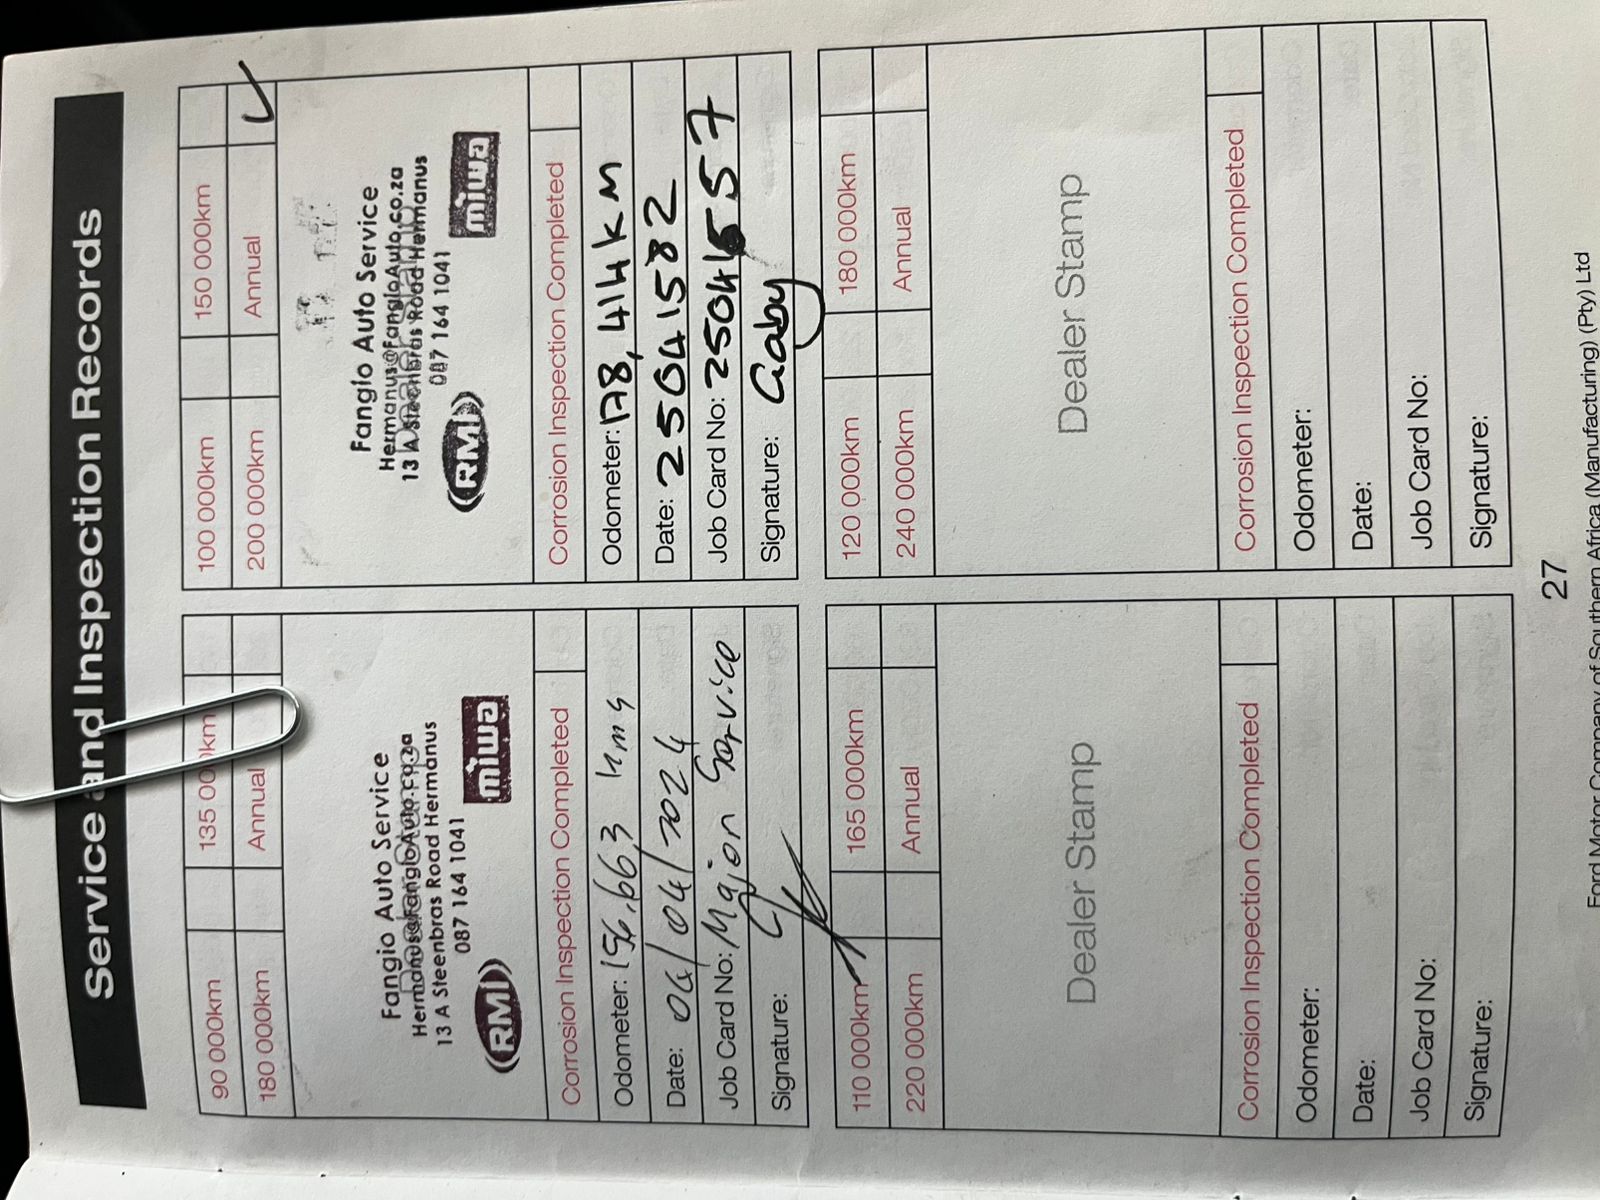 Service and Inspection Records
90 000km 135 000km
180 000km Annual
Fangio Auto Service
Hermanus@FangioAuto.co.za
13 A Steenbras Road Hermanus
087 164 1041
(RMI) miwa
Corrosion Inspection Completed
Odometer: 156.663 kms
Date: 04/04/2024
Job Card No: Major Service
Signature:
100 000km 150 000km
200 000km Annual ✓
Fangio Auto Service
Hermanus@FangioAuto.co.za
13 A Steenbras Road Hermanus
087 164 1041
(RMI) miwa
Corrosion Inspection Completed
Odometer: 178,414km
Date: 25041582
Job Card No:
Signature: Gaby
110 000km 165 000km
220 000km Annual
Dealer Stamp
Corrosion Inspection Completed
Odometer:
Date:
Job Card No:
Signature:
120 000km 180 000km
240 000km Annual
Dealer Stamp
Corrosion Inspection Completed
Odometer:
Date:
Job Card No:
Signature:
27
Ford Motor Company of Southern Africa (Manufacturing) (Pty) Ltd